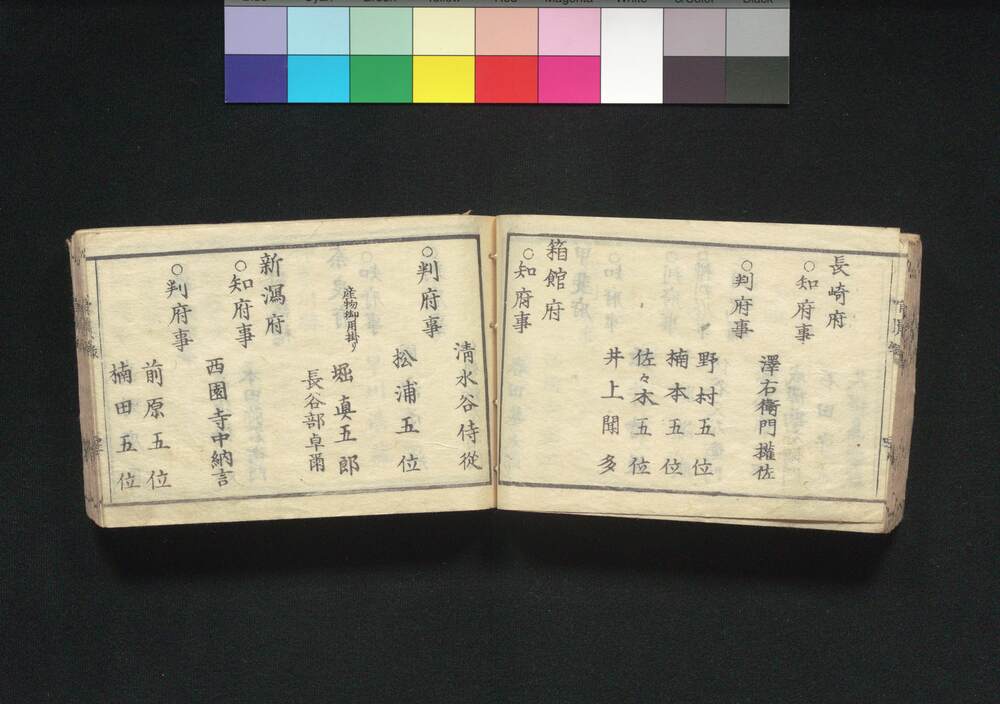 長崎府
○知府事
澤右衛門權佐
○判府事
野村五位
楠本五位
佐々木五位
井上聞多
箱館府
○知府事
清水谷侍從
○判府事
松浦五位
産物御用掛り
堀真五郎
長谷部卓爾
新潟府
○知府事
西園寺中納言
○判府事
前原五位
楠田五位